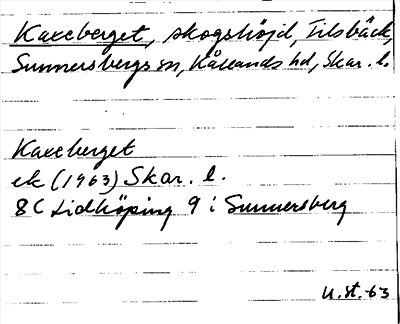 Kaxeberget, skogshöjd, Tilsbäck,
Sunnersbergs sn, Kållands hd, Skar. l.
Kaxeberget
ek (1963) Skar. l.
8C Lidköping 9 i Sunnersberg
U. st. 63